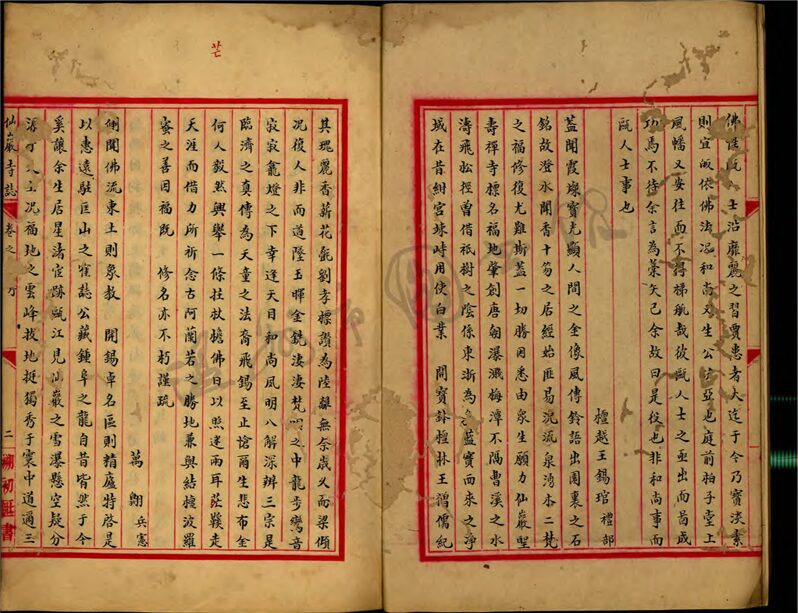 佛 士沿靡麗之習賈患者大迄于今乃實淡素
則宣 依佛法 和尚 生公 亞也庭前柏子堂上
風幡又安往而不得梯航哉彼甌人士之亟出而 成
功焉不待余言為 矣已余故曰是役也非和尚事而
甌人士事也
檀越王錫琯 禮部
蓋聞霞燦寶光顯人間之金像風傳鈴語出園裏之石
銘故澄水聞香十笏之居經始匪易況流泉湧本二梵
之福修復尤難斯蓋一切勝因悉由衆生願力仙巖聖
壽禪寺標名福地肇創唐朝瀑濺梅潭不隔曹溪之水
濤飛松徑曾借祇樹之陰係東浙為 藍實西來之淨
域在昔紺宮 時用使白業 開寶鉢檀林王 僧儒紀
其瑰麗香薪花 劉孝標讚為陸 無奈歲久而梁傾
况復人非而道墜玉暉金鏡淒淒梵 之中龍步鸞音
寂寂龕燈之下幸逢天目和尚風明八解深辨三宗是
臨濟之真傳為天童之法裔飛錫至止愴爾生悲布金
何人毅然興舉一條拄杖擔佛日以照迷兩耳茫鞋走
天涯而借力所祈念古阿蘭若之勝地兼與結檀波羅
蜜之善因福既 修名亦不朽謹疏
萬 翱 兵憲
側聞佛流東土則象教 開錫卓名區則精廬特啓是
以惠遠駐匡山之 誌公藏鍾阜之龍自昔皆然于今
奚讓余生居星渚宦跡甌江見仙巖之雪瀑懸空疑分
況福地之雲峰拔地挺獨秀于寰中道過三
仙巖寺誌 卷之 二 朔初莊書
茫